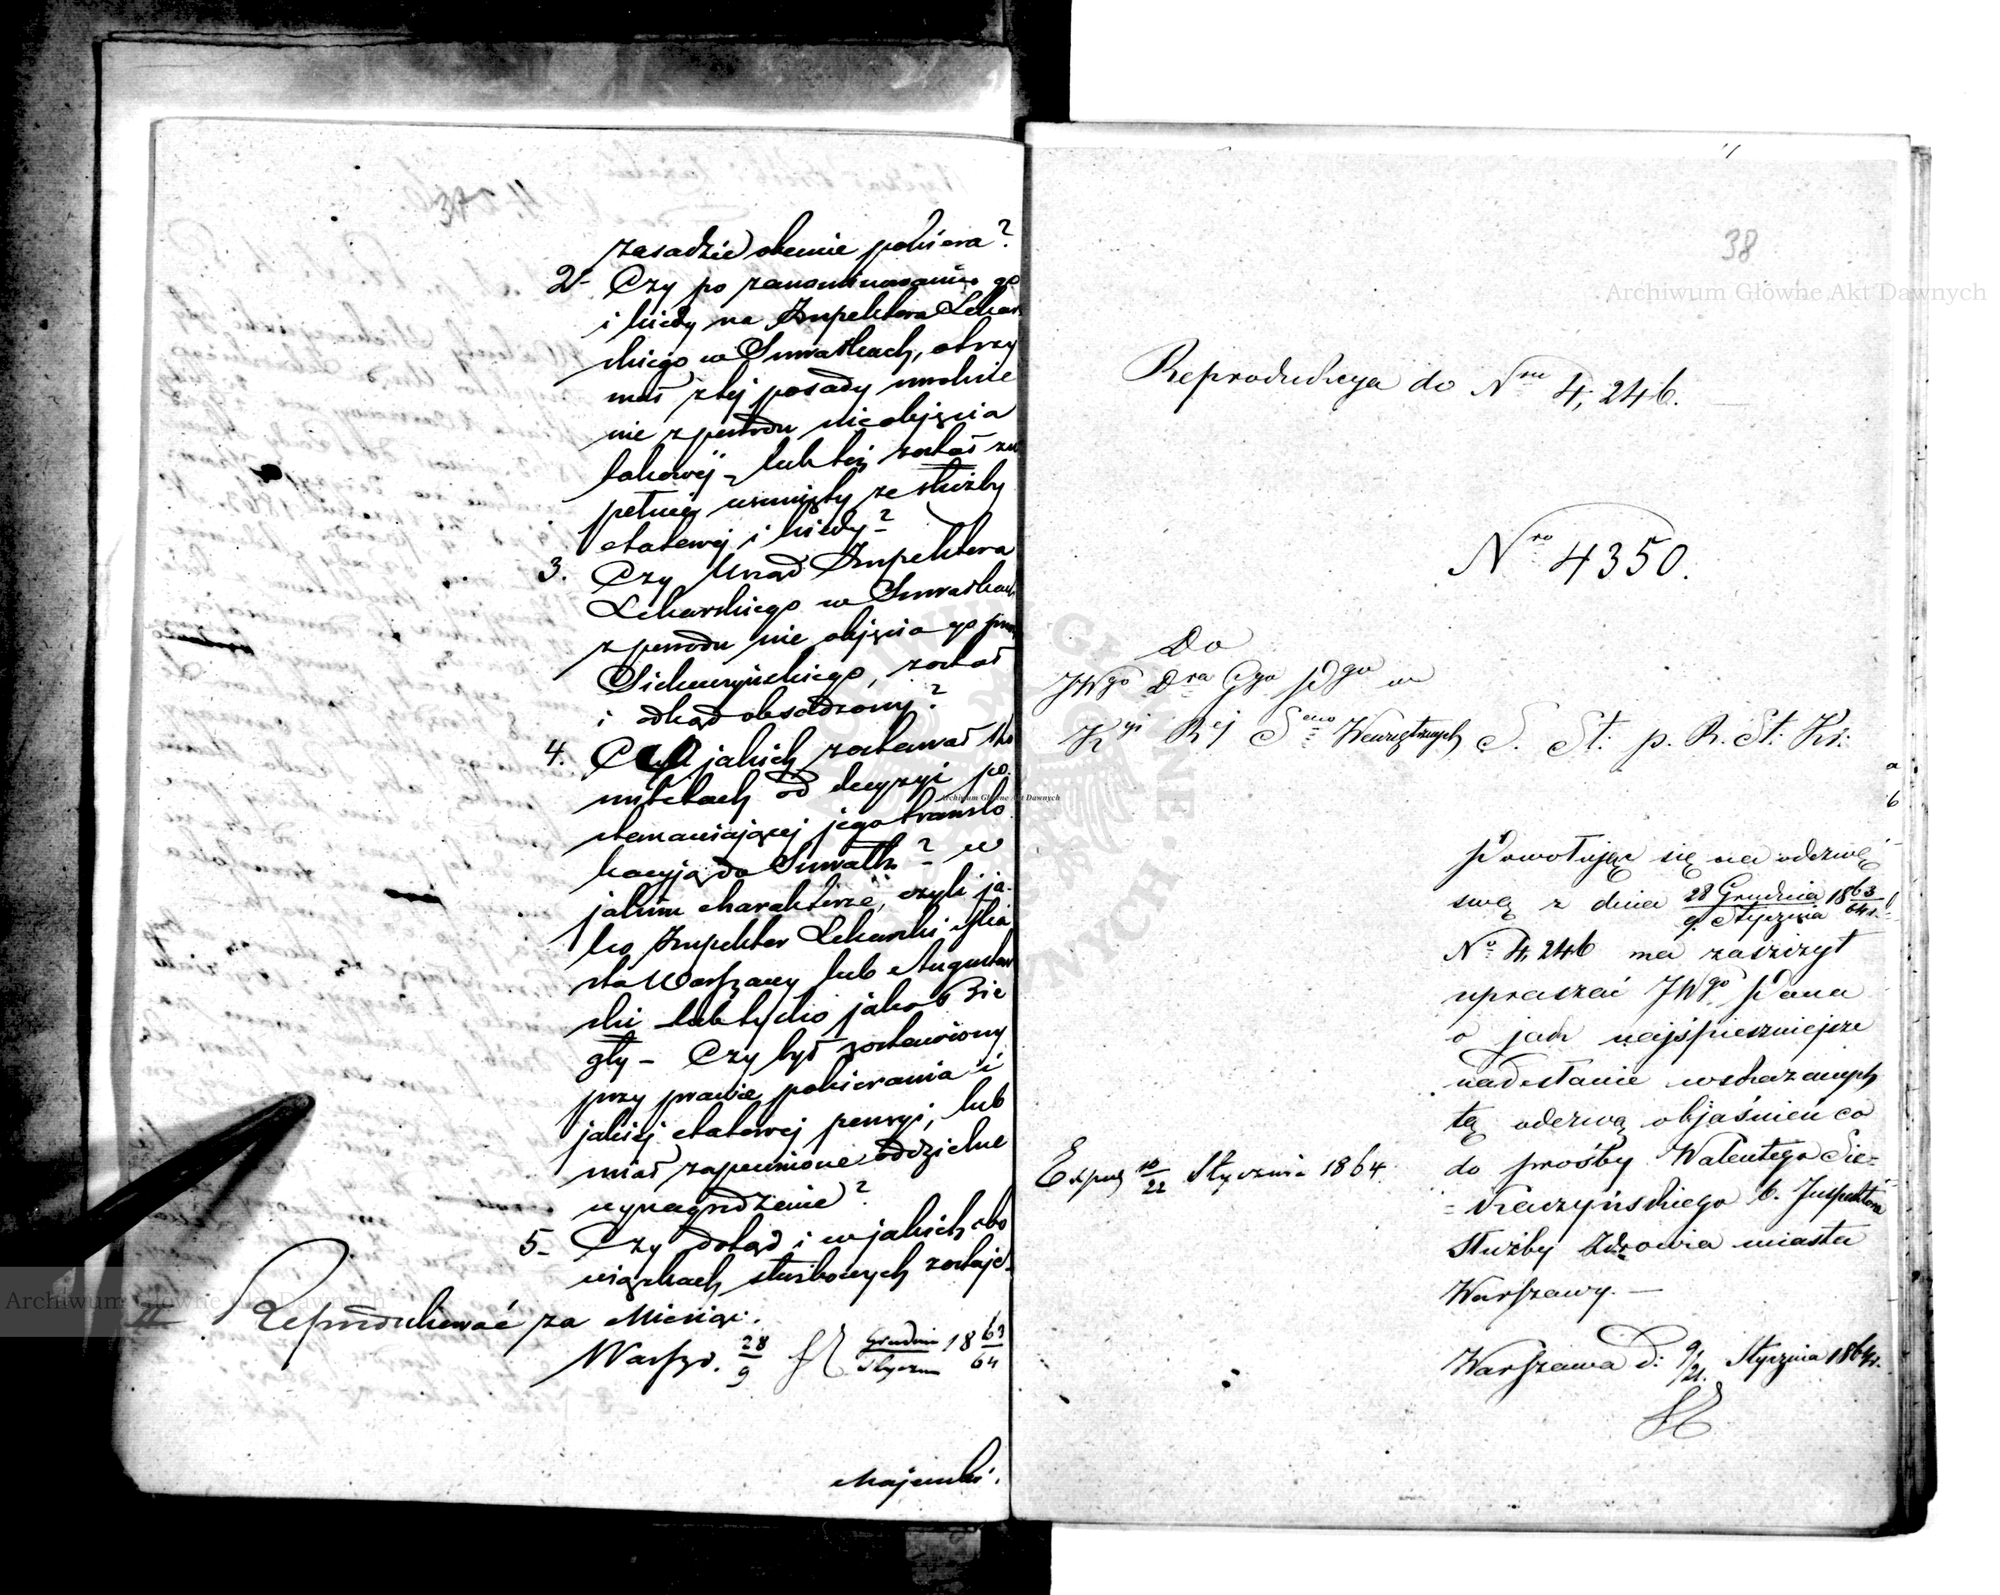 zasadzie obecnie pobiera?
2- Czy po zanominowaniu go
i kiedy na Inspektora Lekar
skiego w Suwałkach, otrzy
mał z tej posady uwolnie
nie z powodu nieobjęcia
takowéj – lub też został zu
pełnie usunięty ze służby
etatowej i kiedy?
3. Czy Urząd Inspektora
Lekarskiego w Suwałkach
z powodu nie objęcia go przez
Siekaczyńskiego, został
i odkąd obsadzony?
4. jakich zostawał sto
sunkach od decyzyi po
stanawiającej jego translo
kacyją do Suwałk? w
jakim charakterze, czyli ja-
ko Inspektor Lekarski Mia
sta Warszawy lub Augustow
ski lub tylko jako Bie
gły – Czy był zostawiony
przy prawie pobierania i
jakiej etatowej pensyi, lub
miał zapewnione oddzielne
wynagrodzenie?
5- Czy dotąd i w jakich obo
wiązkach służbowych zostaje.
II Reprodukować za Miesiąc.
Warszw. 28/9 Grudnia/Styczn 18 63/64
Majewski.
38
Reprodukcya do Nru 4,246.
Nro 4350.
Do
JWgo Dra Ggo Pgo w
Kyi Rej S Wewnętrznych S. St: p. R. St: Kr:
Powołując się na odezwę
swą z dnia 28 Grudnia/9 Stycznia 1863/64 r.
No 4,246 ma zaszczyt
upraszać JWgo Pana
o jak najśpieszniejsze
nadesłanie wskazanych
tą odezwą objaśnień co
do prośby Walentego Sie=
=kaczyńskiego b. Inspektora
Służby Zdrowia miasta
Warszawy. —
Exped 10/22 Stycznia 1864.
Warszawa d: 9/21. Stycznia 1864 r.
Archiwum Główne Akt Dawnych
Archiwum Główne Akt Dawnych
Archiwum Główne Akt Dawnych